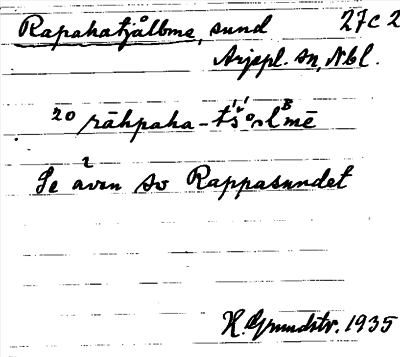 Rapahatjålbme, sund 27C2
Arjepl. sn, Nbl.
20 rāhpaha-
Se även sv Rappasundet
H. Grundstr. 1935